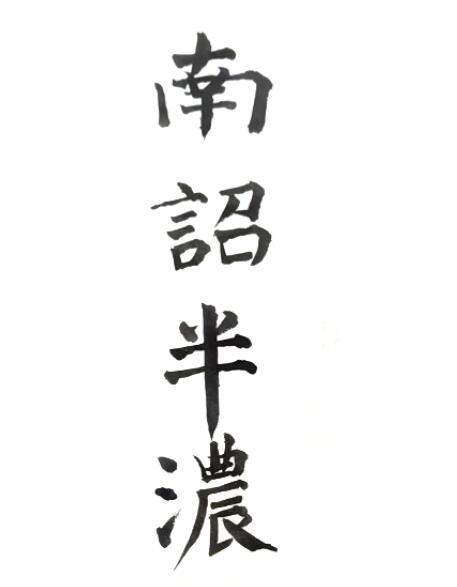 南詔半濃